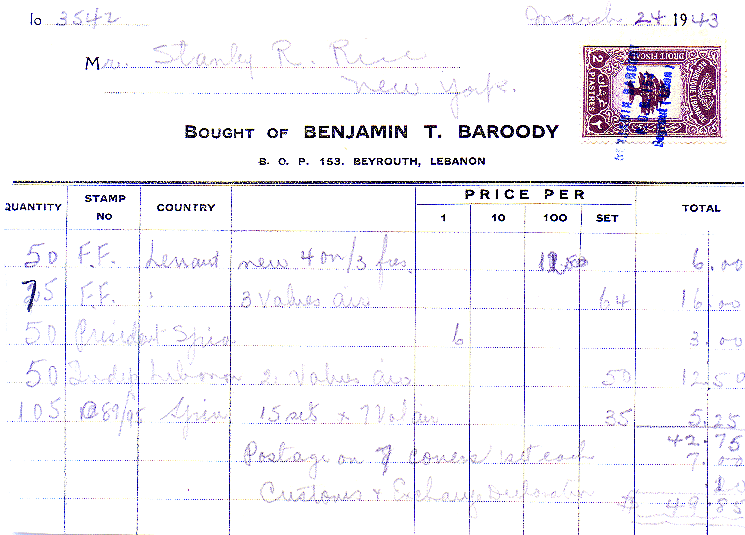 No 3542 March 24 1943
Mr. Stanly R. Rice
New York.
DROIT FISCAL
2 PIASTRES
BOUGHT OF BENJAMIN T. BAROODY
B. O. P. 153. BEYROUTH, LEBANON
QUANTITY STAMP NO COUNTRY PRICE PER 1 10 100 SET TOTAL
50 F.F. Levant new 4 on/3 frs. 12.50 6.00
25 F.F. " 3 Values air 64 16.00
50 President Syria 6 3.00
50 Lebanon 2 Values air 50 12.50
105 Syria 15 sets x 7 Values 35 5.25
42.75
Postage on 7 covers 1 set each 7.00
Customs & Exchange Declaration .10
$ 49.85